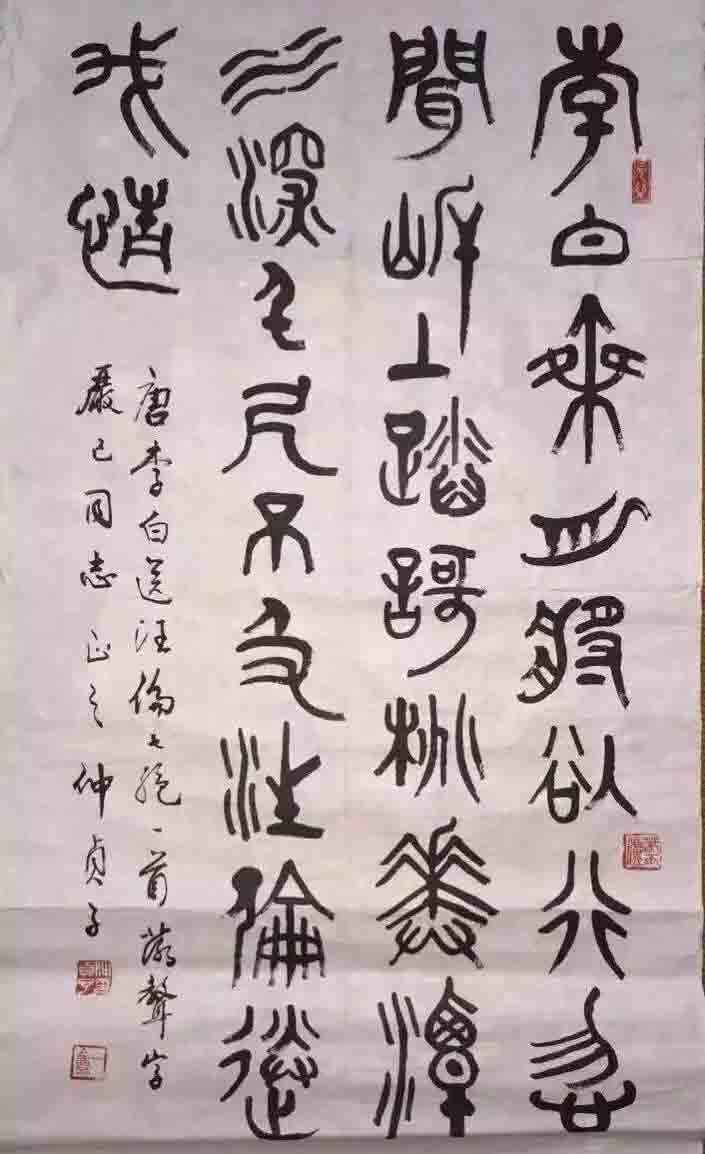 李白乘舟將欲行忽
聞岸上踏謌桃華潭
水深千尺不及汪倫送
我情
唐李白送汪倫七絕一首落聲字
嚴己同志正之 仲貞子